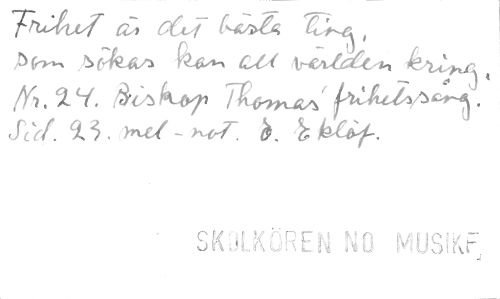 Frihet är det bästa ting,
som sökas kan all världen kring.
Nr. 24. Biskop Thomas' frihetssång.
Sid. 23. mel-not. E. Eklöf.
SKOLKÖREN NO MUSIKF.